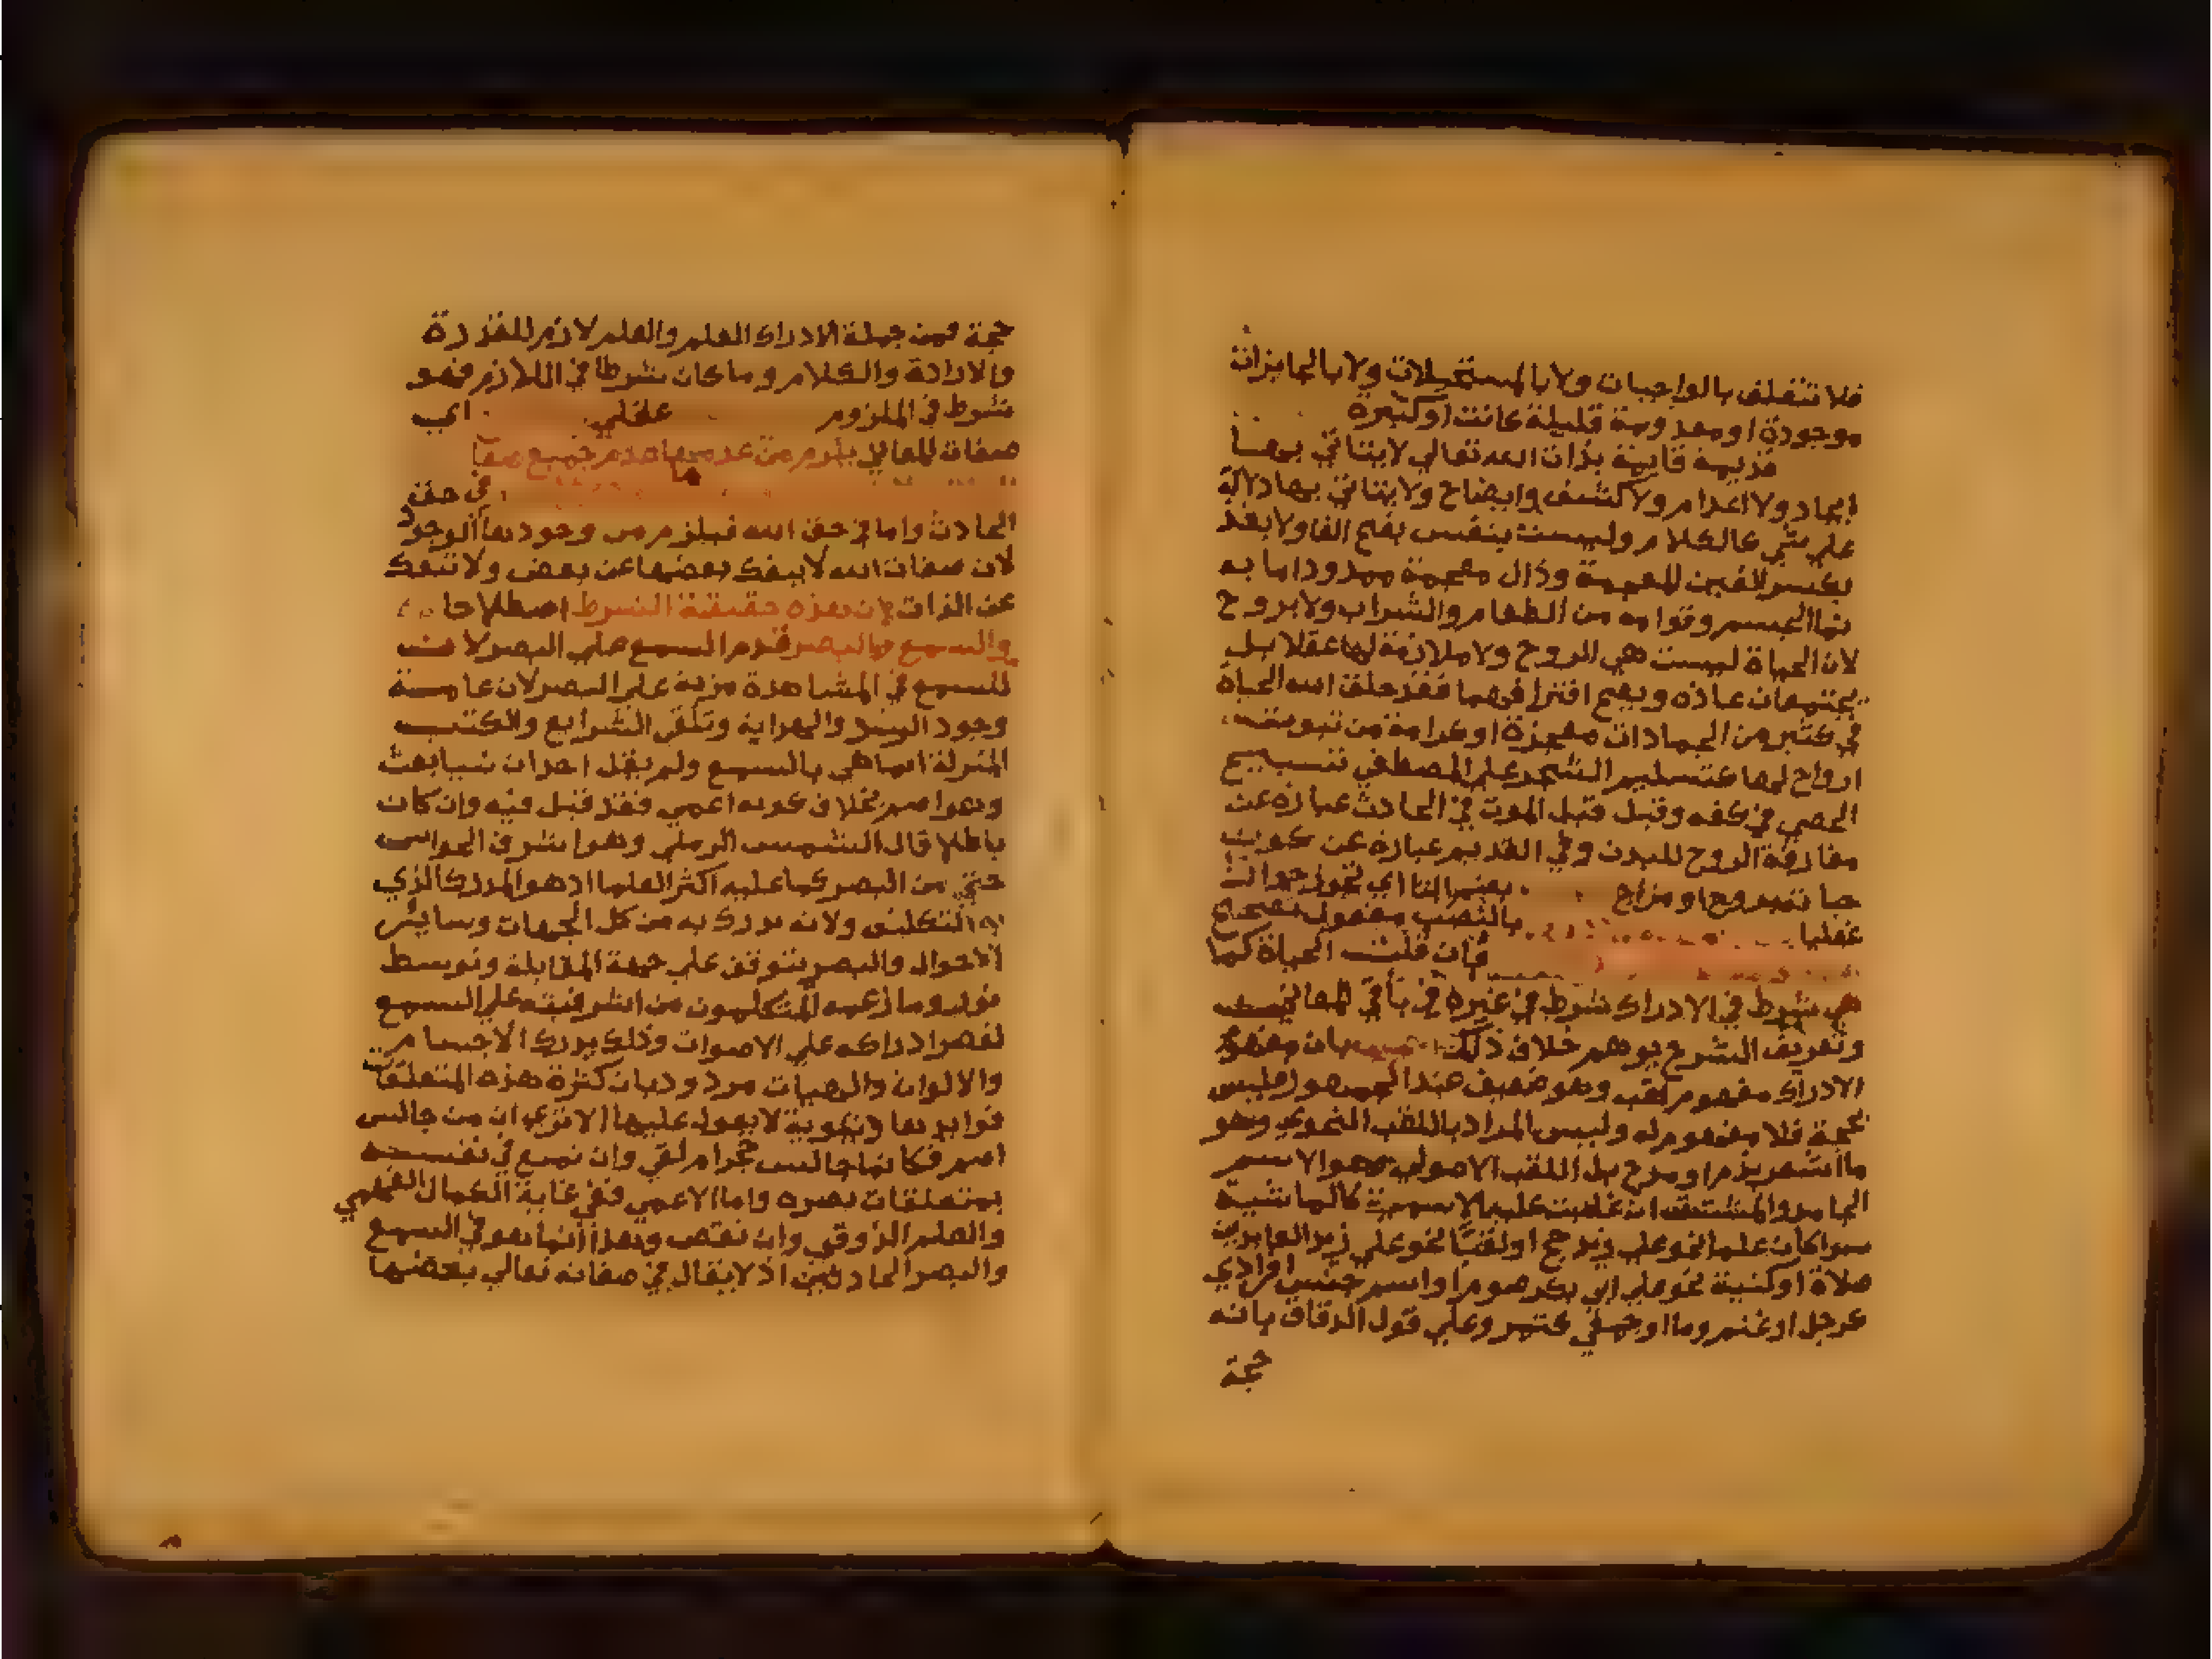 فلا تتعلق بالواجبات ولا بالمستحيلات ولا بالجايزات
موجودة او معدومة قليلة كانت او كثيرة
قديمة قايمة بذات الله تعالي لا يتاتي بها
ايجاد ولا اعدام ولا كشف وايضاح ولا يتاتي بها دلالة
علي شي كالكلام وليست بنفس بفتح الفا ولا بغذ
بكسر الغين المعجمة وذال معجمة ممدودا ما به
نما الجسم وقوامه من الطعام والشراب ولا بروح
لان الحياة ليست هي الروح ولا ملازمة لها عقلا بل
يجتمعان عادة ويصح افتراقهما فقد خلق الله الحياة
في كثير من الجمادات معجزة او كرامة من
ارواح لها كتسليم الشجر علي المصطفي تسبيح
الحصي في كفه وقيل قبل الموت في الحادث عبارة عن
مفارقة الروح للبدن وفي القديم عبارة عن كونه
روح او مزاج بضم التا اي تجوز
عقليا بالنصب مفعول تصحح
فان قلت الحياة كما
هي شرط في الادراك شرط في غيره في باقي المعاني
وتعريف الشرح يوهم خلاف ذلك بان مفهوم
الادراك مفهوم لقب وهو ضعيف عند الجمهور فليس
بحجة فلا مفهوم له وليس المراد باللقب النحوي وهو
ما اشعر بذم او مدح بل اللقب الاصولي وهو الاسم
الجامد والمشتق ان غلبت عليه الاسمية كالماشية
سوا كان علما نحو علي زيد حج او لقبا نحو علي زين العابدين
صلاة او كنية نحو علي ابي بكر صوم او اسم جنس افرادي
كرجل او غنم وما او جمعي كتمر وعلي قول الدقاق بانه
حجة
حجة فمن جملة الادراك العلم والعلم لازم للقدرة
والارادة والكلام وما كان شرطا في اللازم فهو
شرط في الملزوم عقلي اي
صفات المعاني يلزم من عدمها عدم جميع صفات
في حق
الحادث واما في حق الله فيلزم من وجودها الوجود
لان صفات الله لا ينفك بعضها عن بعض ولا تنفك
عن الذات لان هذه حقيقة الشرط اصطلاحا
والسمع والبصر قدم السمع علي البصر لان
للسمع في المشاهدة مزية علي البصر لان عامة
وجود الرشد والهداية وتلقي الشرايع والكتب
المنزلة انما هي بالسمع ولم يقل احد ان نبيا بعث
وهو اصم بخلاف كونه اعمي فقد قيل فيه وان كان
باطلا قال الشمس الرملي وهو اشرف الحواس
حتي من البصر كما عليه اكثر العلما اذ هو المدرك الذي
به التكليف ولانه يدرك به من كل الجهات وساير
الاحوال والبصر يتوقف علي جهة المقابلة وتوسط
نور وما زعمه المتكلمون من اشرفيته علي السمع
لقصر ادراكه علي الاصوات وذلك يدرك الاجسام
والالوان والهيات مردود بان كثرة هذه المتعلقات
فوايدها دنيوية لا يعول عليها الا تري ان من جالس
اصم فكانما جالس حجرا ملقي وان تمتع في نفسه
بمتعلقات بصره واما الاعمي ففي غاية الكمال الفهمي
والعلم الذوقي وان نقص وهذا انما هو في السمع
والبصر الحادثين اذ لا يقال في صفاته تعالي بعضها